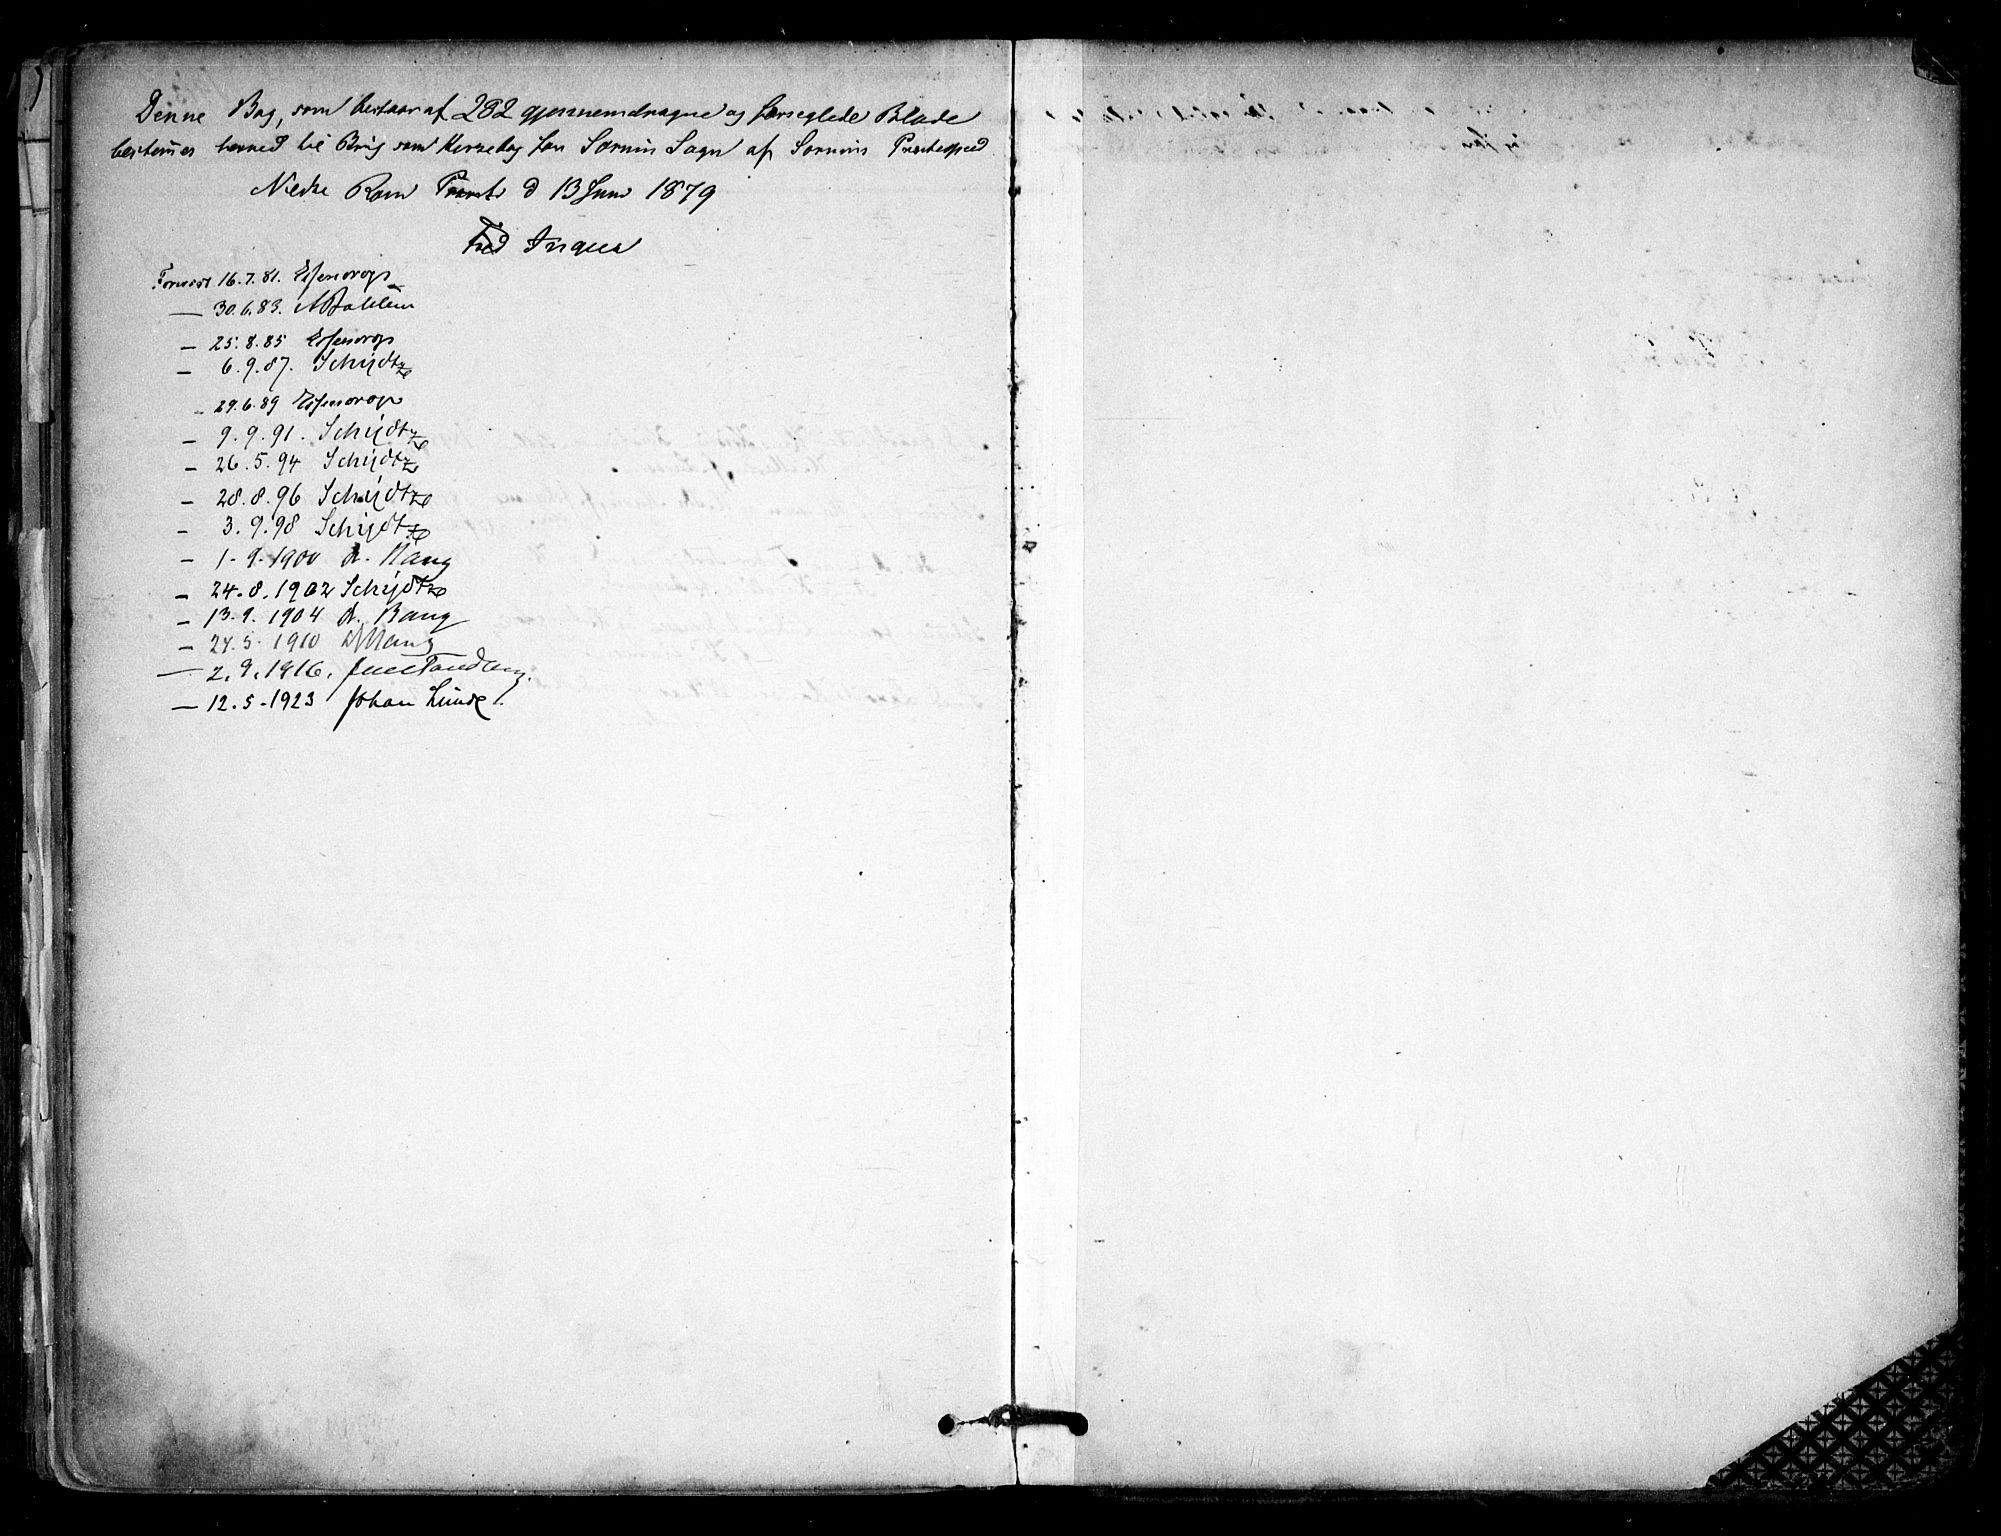 Denne Bog, som bestaar af 282 gjennemdragne og forseglede Blade
bestem̄es herved til Brug som Kirkebog for Sørum Sogn af Sørums Præstegjeld
Nedre Rom Provsti d 13 Juni 1879
Fred
Forevist 16.7.81. Essendrop
— 30.6.83.
— 25.8.85 Essendrop
— 6.9.87. Schjødtz
— 29.6.89 Essendrop
— 9.9.91. Schjødtz
— 26.5.94 Schjødtz
— 28.8.96 Schjødtz
— 3.9.98 Schjødtz
— 1-9.1900 A. Bang
— 24.8.1902 Schjødtz
— 13.9.1904 A. Bang
— 27.5.1910 A Bang
— 2.9.1916. Jens Tandberg.
— 12.5-1923 Johan Lunde.